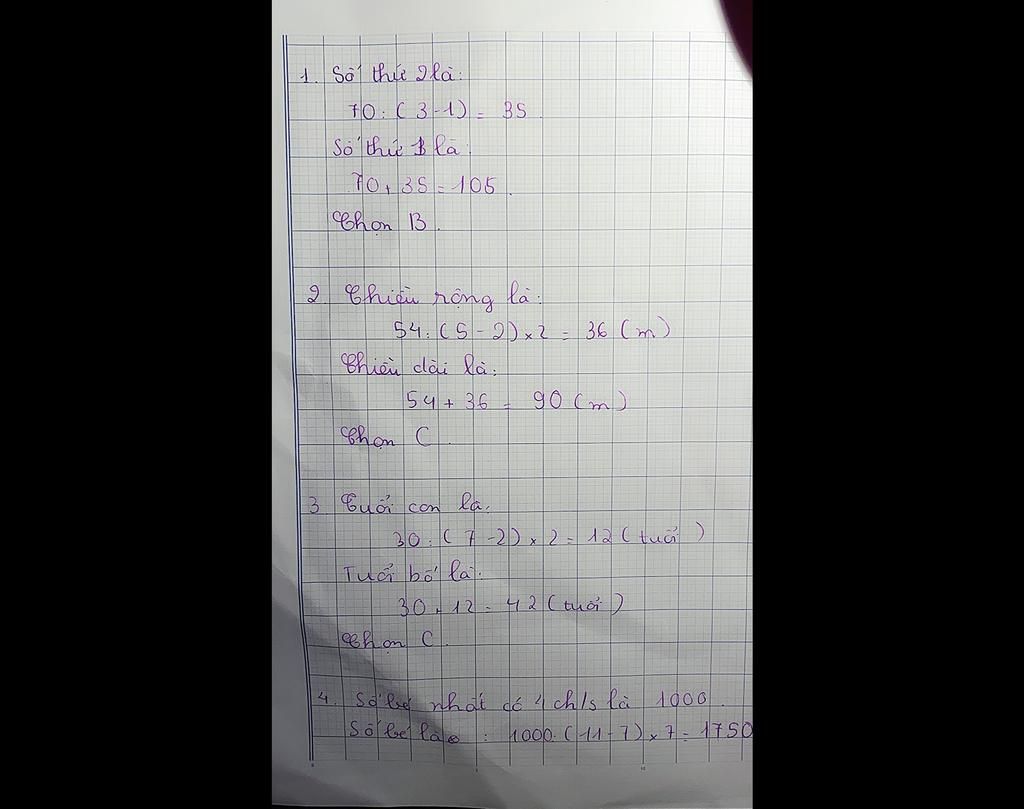 1. Số thứ 2 là:
70 : (3 - 1) = 35
Số thứ 1 là:
70 + 35 = 105.
Chọn B.
2. Chiều rộng là:
54 : (5 - 2) x 2 = 36 (m)
Chiều dài là:
54 + 36 = 90 (m)
Chọn C.
3. Tuổi con là:
30 : (7 - 2) x 2 = 12 (tuổi)
Tuổi bố là:
30 + 12 = 42 (tuổi)
Chọn C.
4. Số bé nhất có 4 ch/s là 1000.
Số bé là : 1000 : (11 - 7) x 7 = 1750